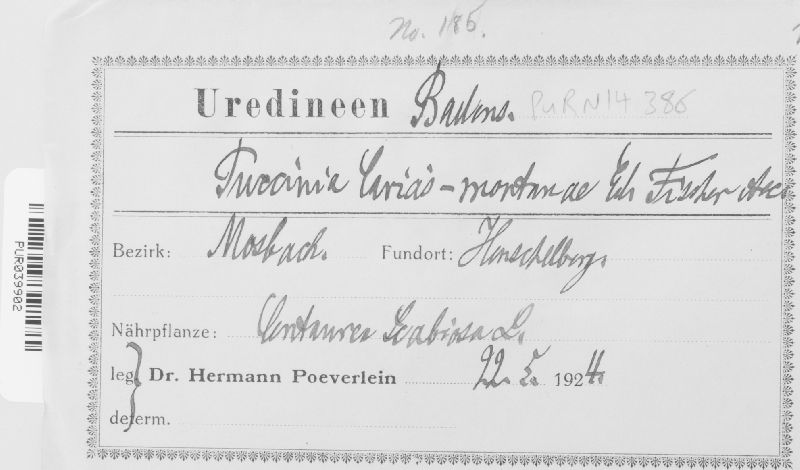 No. 186.
Uredineen Badens. PURN14 386
Puccinia Caricis-montanae Ed. Fischer Aec
Bezirk: Mosbach. Fundort: Henschelberg.
Nährpflanze: Centaurea Scabiosa L.
leg. Dr. Hermann Poeverlein 22. 5. 1924.
determ.
PUR039902